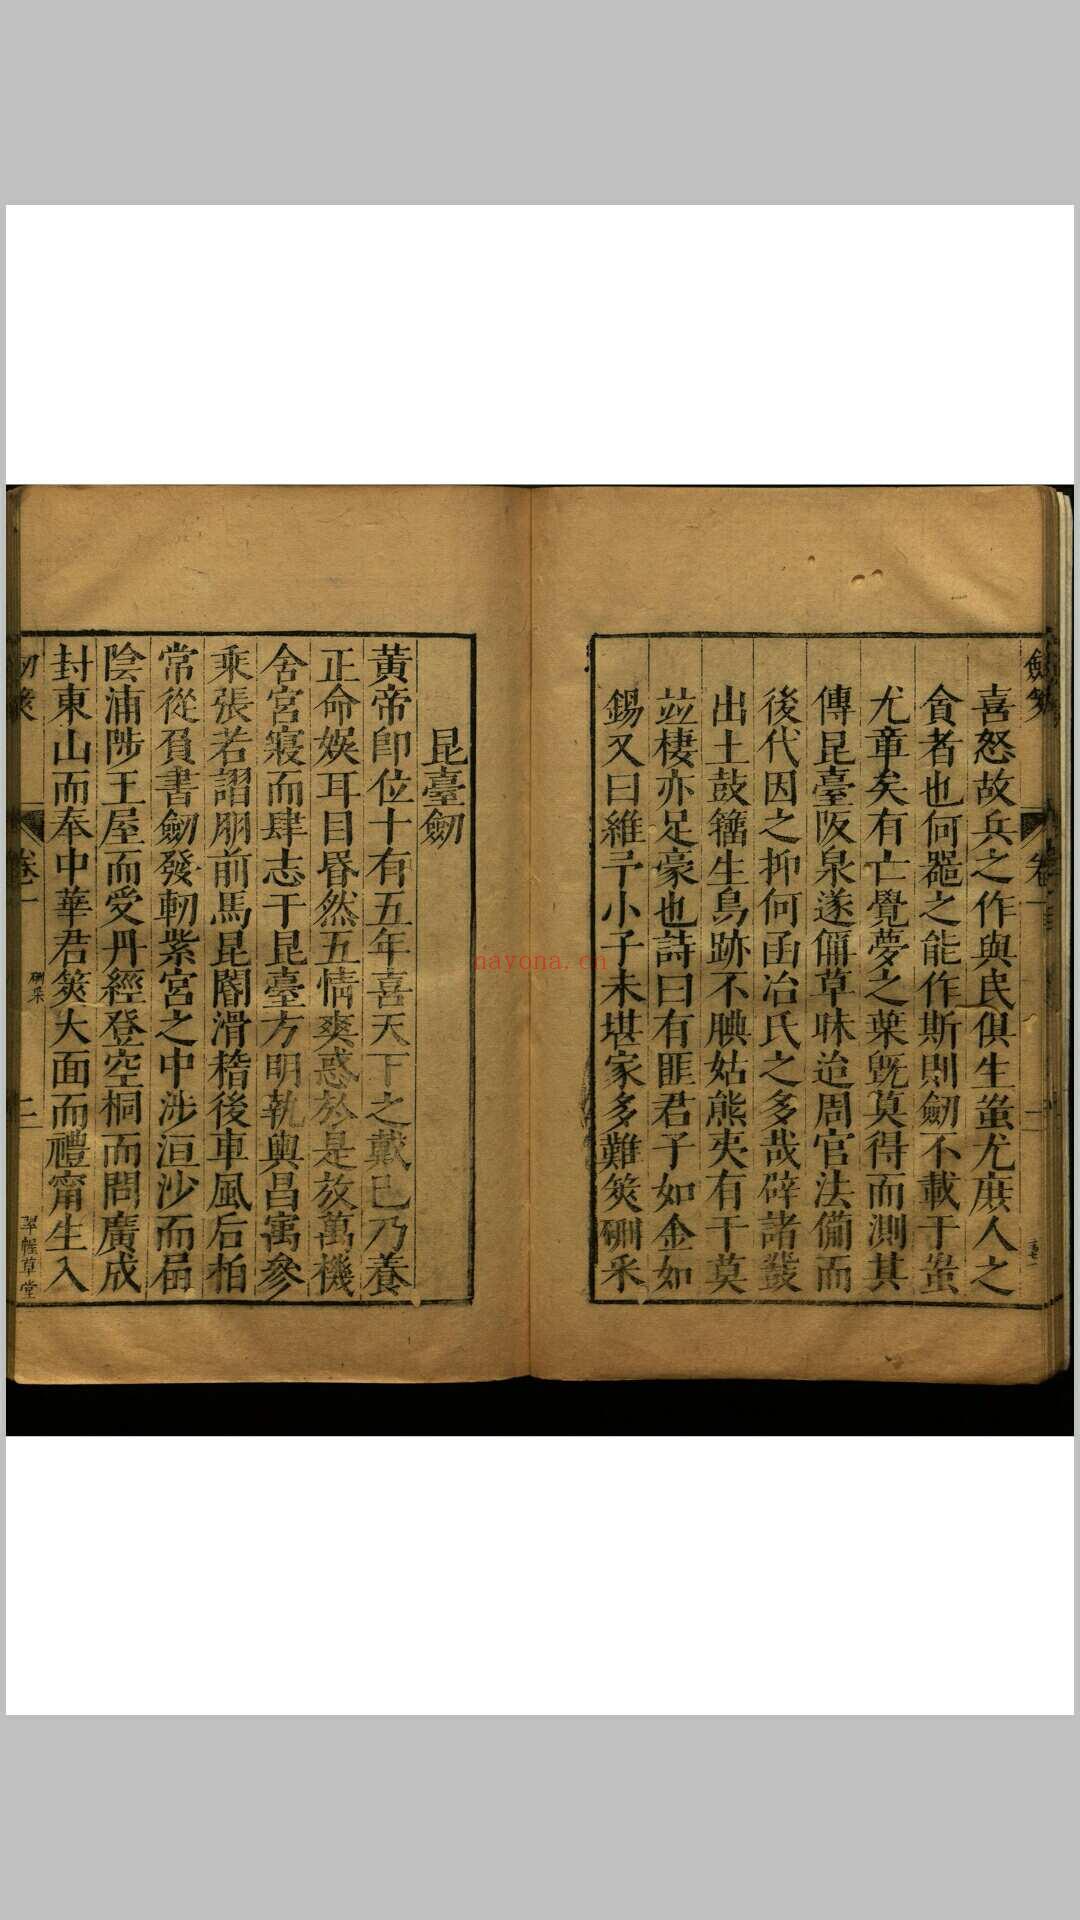 喜怒故兵之作與民俱生蚩尤庶人之
貪者也何噐之能作斯則劒不載于蚩
尤章矣有亡覺夢之葉旣莫得而測其
傳昆臺阪泉遂俑草昧迨周官法俻而
後代因之抑何函冶氏之多哉辟諸𥫗
出土鼓籒生鳥跡不腆姑熊夾有干莫
並棲亦足豪也詩曰有匪君子如金如
錫又曰維予小子未堪家多難筴硎采
昆臺劒
黃帝卽位十有五年喜天下之戴己乃養
正命娛耳目昬然五情爽惑於是放萬機
舍宮寢而肆志于昆臺方明執輿昌寓參
乘張若謵朋前馬昆閽滑稽後車風后柏
常從負書劒發軔紫宮之中涉洹沙而屆
陰浦陟王屋而受丹經登空桐而問廣成
封東山而奉中華君筴大面而禮甯生入
劒筴
卷一
硎采
二
翠幄草堂
nayona.cn